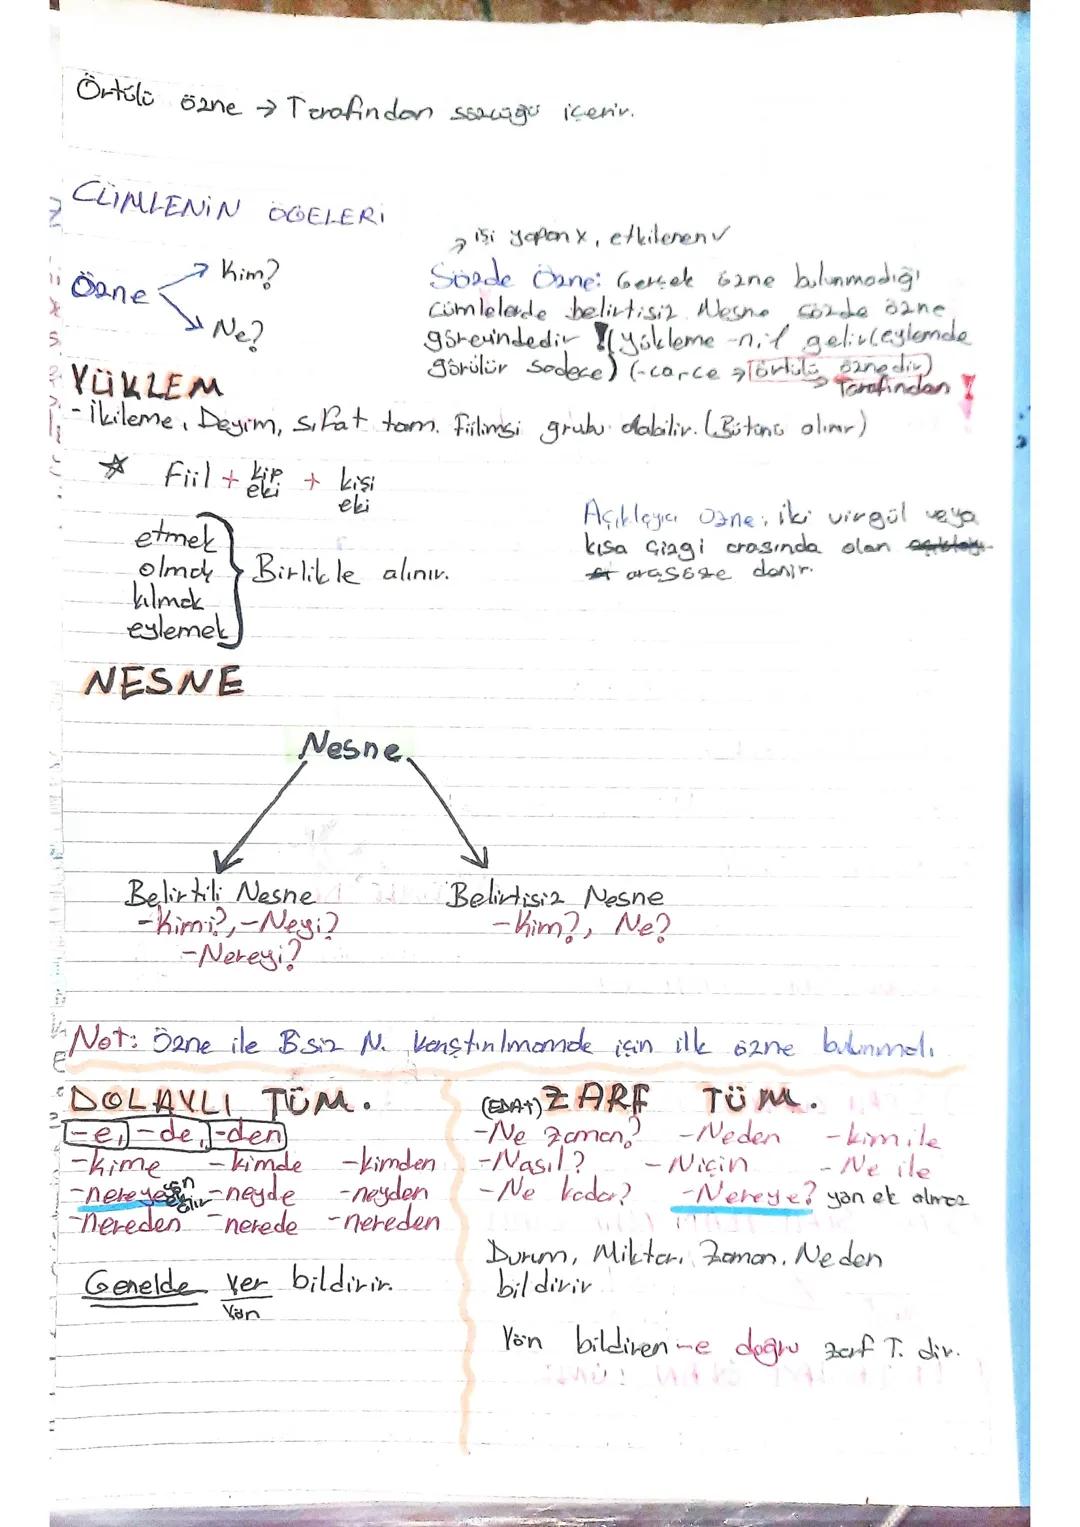 Örtülü özne → Tarafından sözcüğü içerir.
CÜMLENİN ÖĞELERİ
Özne
→ Kim?
→ Ne?
→ işi yapan x, etkilenen ✓
Sözde Özne: Gerçek özne bulunmadığı
cümlelerde belirtisiz Nesne sözde özne
görevindedir !(yükleme -n,il gelir(eylemde
görülür sadece) (-ca,ce → örtülü öznedir)
→ Tarafından !
YÜKLEM
- İkileme, Deyim, sıfat tam. fiilimsi grubu olabilir. (Bütünü alınır)
☆ Fiil + kip eki + kişi eki
etmek
olmak
kılmak
eylemek
Birlikle alınır.
Açıklayıcı Özne: iki virgül veya
kısa çizgi arasında olan
arasöze denir.
NESNE
Nesne
Belirtili Nesne
-Kimi?, -Neyi?
-Nereyi?
Belirtisiz Nesne
-Kim?, Ne?
Not: Özne ile B.siz N. karıştırılmamak için ilk özne bulunmalı
DOLAYLI TÜM.
-e, -de, -den
-kime -kimde -kimden
-nereye -neyde -neyden
-nereden -nerede -nereden
Genelde yer bildirir.
Yön
(EDAT) ZARF TÜM.
-Ne zaman? -Neden -kim ile
-Nasıl? -Niçin -Ne ile
-Ne kadar? -Nereye? yön ek almaz
Durum, Miktar, Zaman, Neden
bildirir
Yön bildiren -e doğru zarf T. dir.